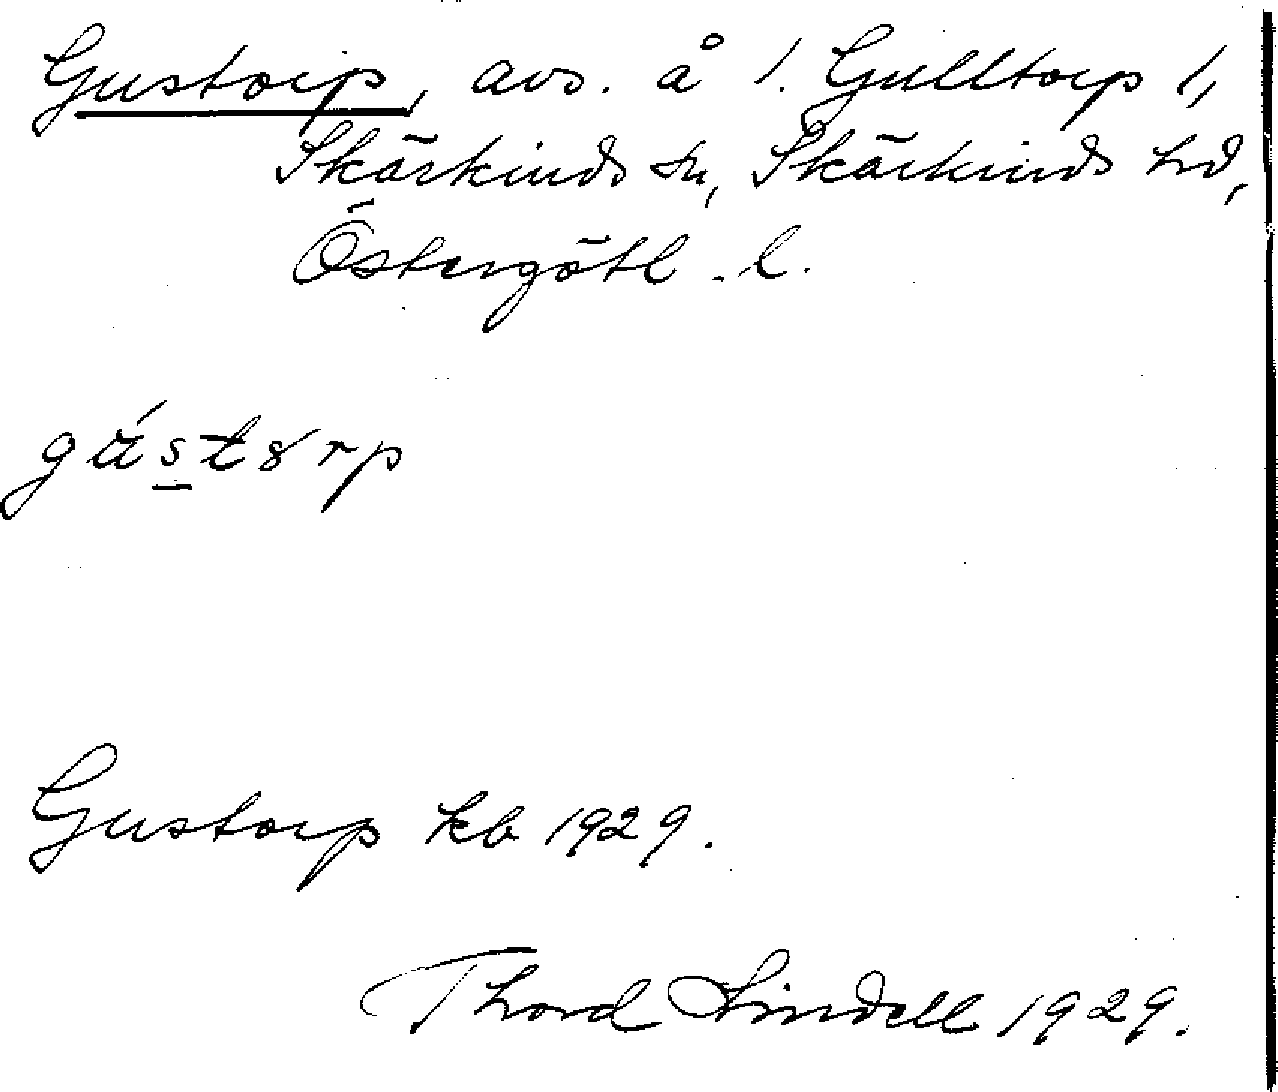 Gustorp, avs. å 1. Gulltorp 1,
Skärkinds sn, Skärkinds hd,
Östergötl. l.
Gustorp kb 1929.
Thord Lindell 1929.